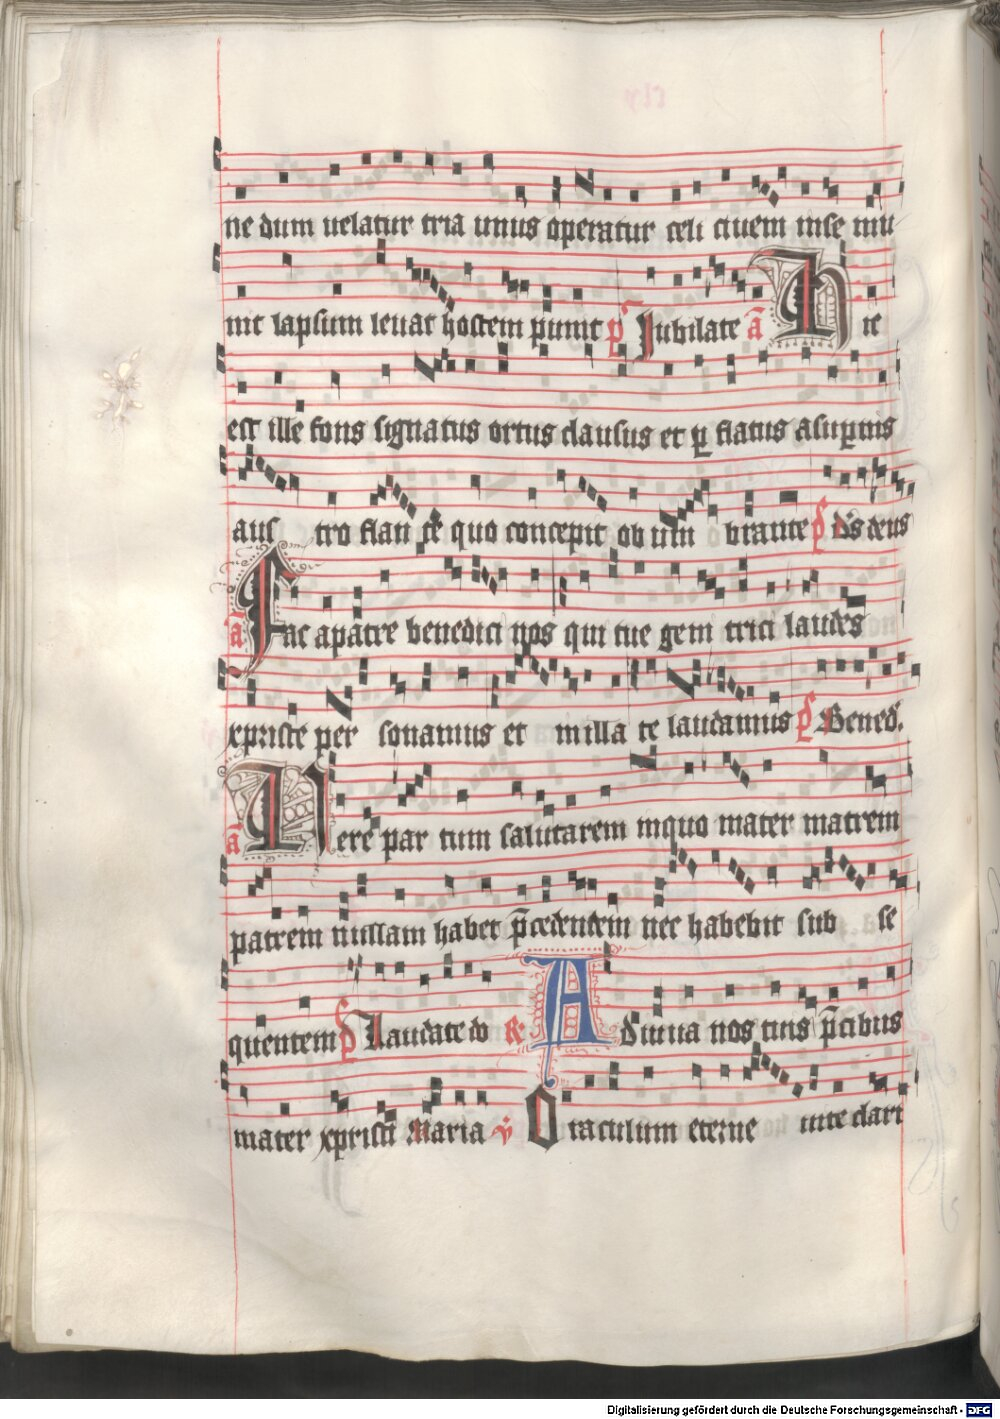 ne dum uelatur tria unus operatur celi ciuem inse mu
nit lapsum leuat hostem punit p̄ Jubilate ā Hic
est ille fons signatus ortus clausus et ꝑ flatus asuꝑnis
aus tro flan te quo concepit ob um brante p̄s dn̄s deus
ā Fac apatre benedici nos qui tue gem trici laudes
xpriste per sonamus et milla te laudamus p̄s Bened.
ā Uere par tum salutarem inquo mater matrem
patrem nullam habet p̄cedentem nec habebit sub se
quentem p̄s Laudate do ℟ Adiuua nos tuis p̄cibus
mater xpristi Maria ℣ Oraculum eterne uite clari
Digitalisierung gefördert durch die Deutsche Forschungsgemeinschaft - DFG